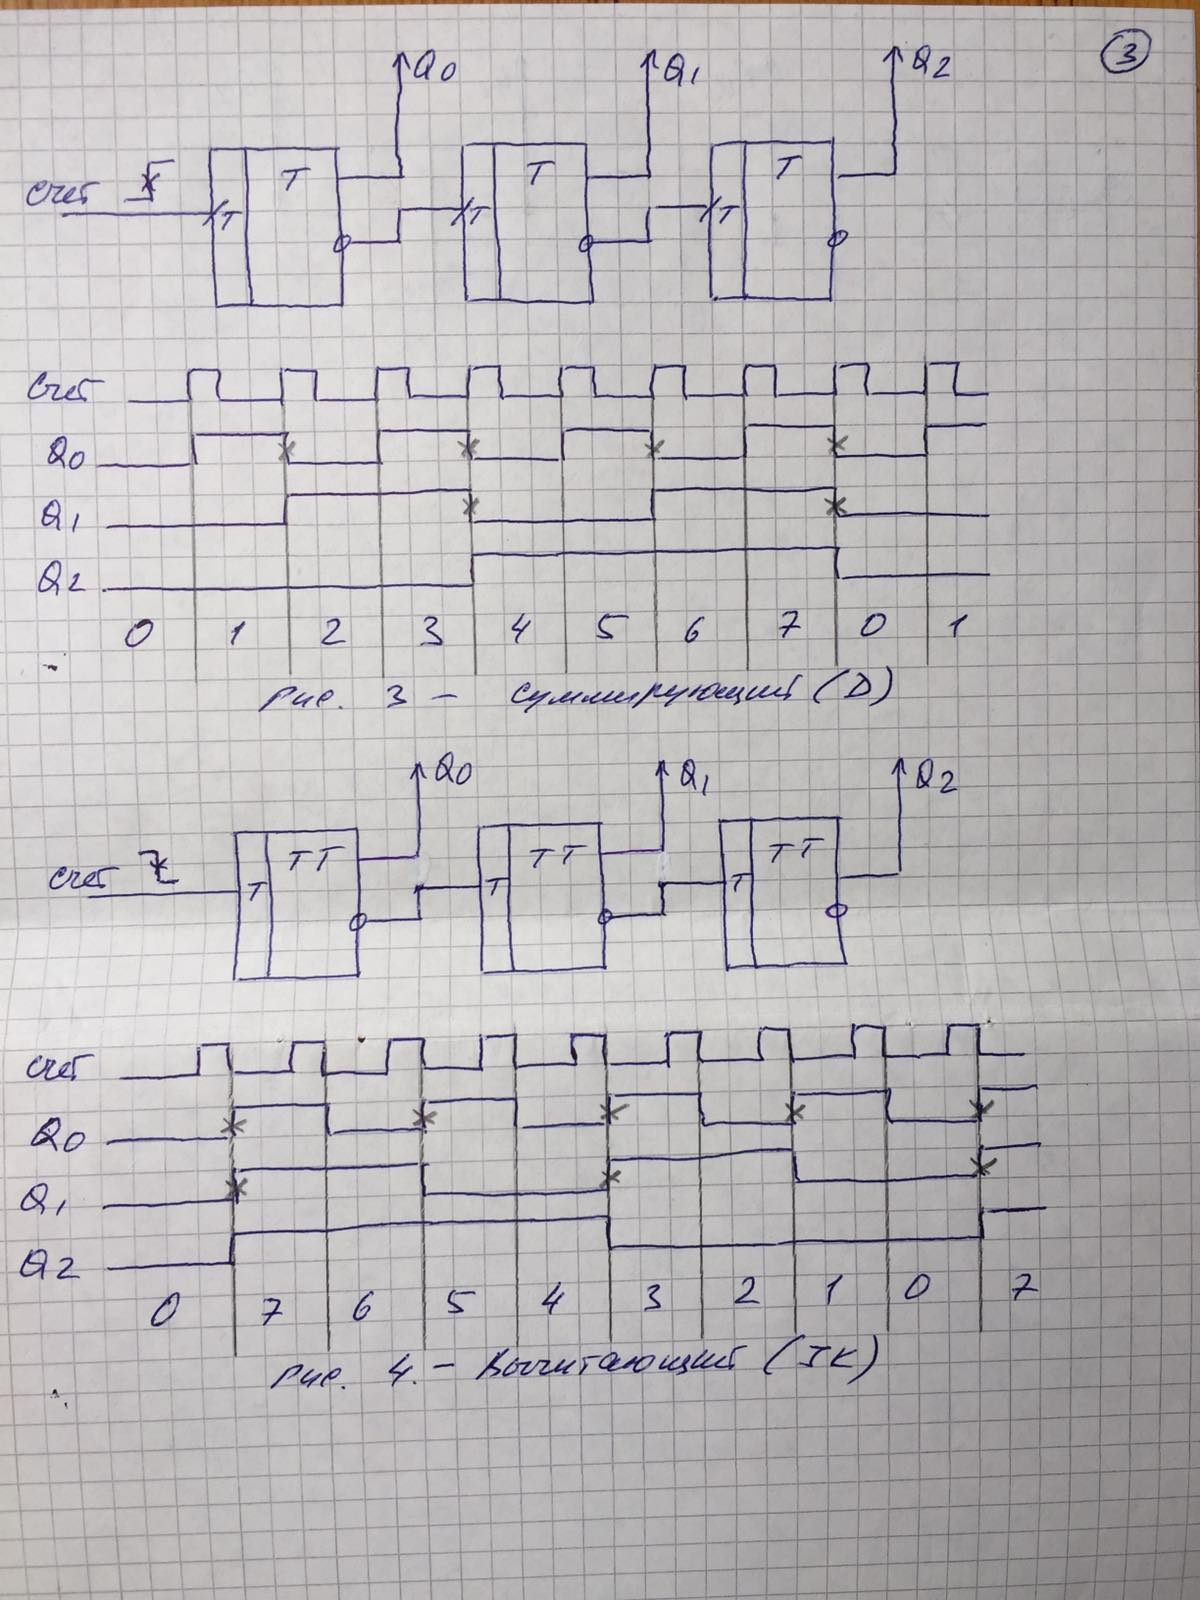 3
Q0 Q1 Q2
счет T T T
T T T
Счет
Q0
Q1
Q2
0 1 2 3 4 5 6 7 0 1
Рис. 3 - Суммирующий (D)
Q0 Q1 Q2
счет TT TT TT
T T T
счет
Q0
Q1
Q2
0 7 6 5 4 3 2 1 0 7
Рис. 4. - Вычитающий (JK)